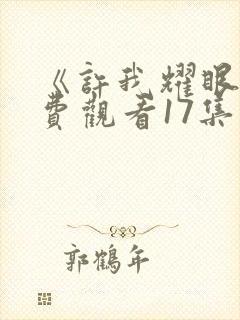 《許我耀眼
費觀看17集
郭鶴年